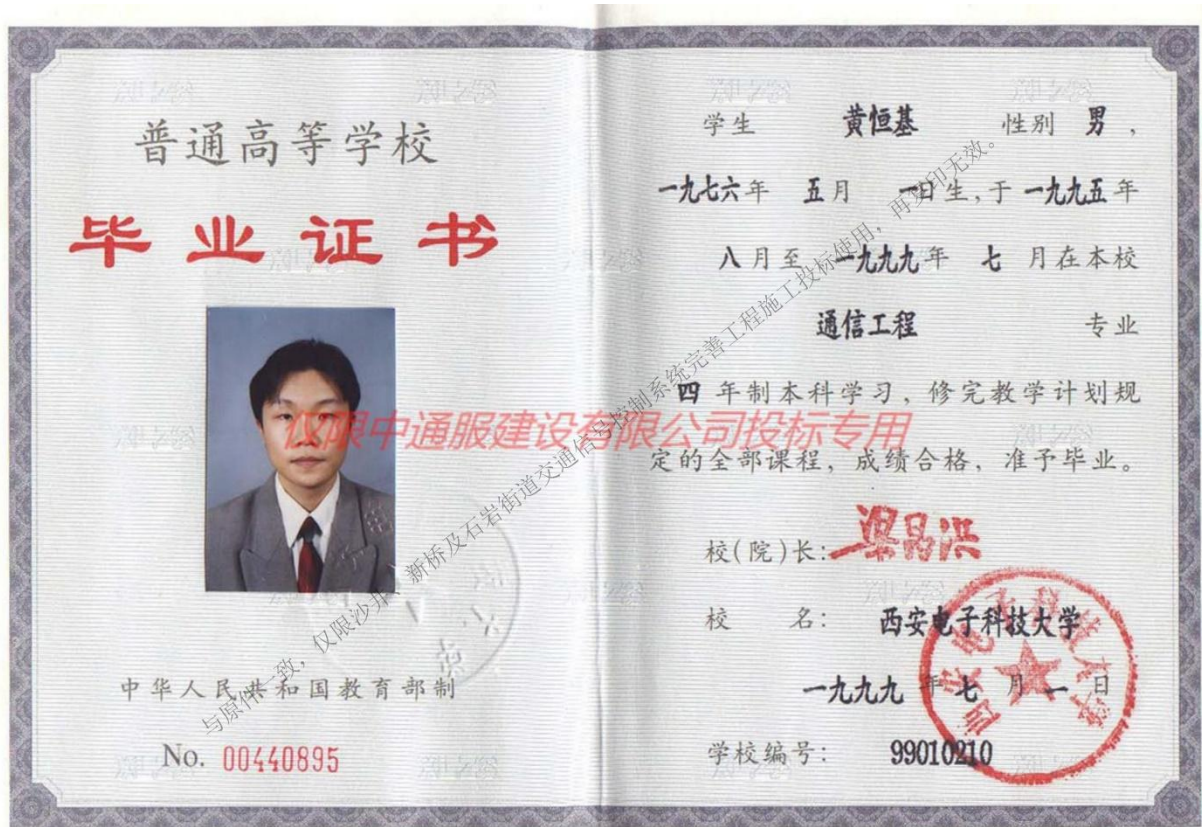 普通高等学校
毕业证书
中华人民共和国教育部制
No. 00440895
学生 黄恒基 性别 男，
一九七六年 五月 一日生,于一九九五年
八月至一九九九年 七 月在本校
通信工程 专业
四 年制本科学习，修完教学计划规
定的全部课程，成绩合格，准予毕业。
校(院)长: 梁昌洪
校 名: 西安电子科技大学
一九九九 年七 月一 日
学校编号: 99010210
西安电子科技大学
仅限中通服建设有限公司投标专用
与原件一致，仅限沙井、新桥及石岩街道交通信号控制系统完善工程施工投标使用，再复印无效。